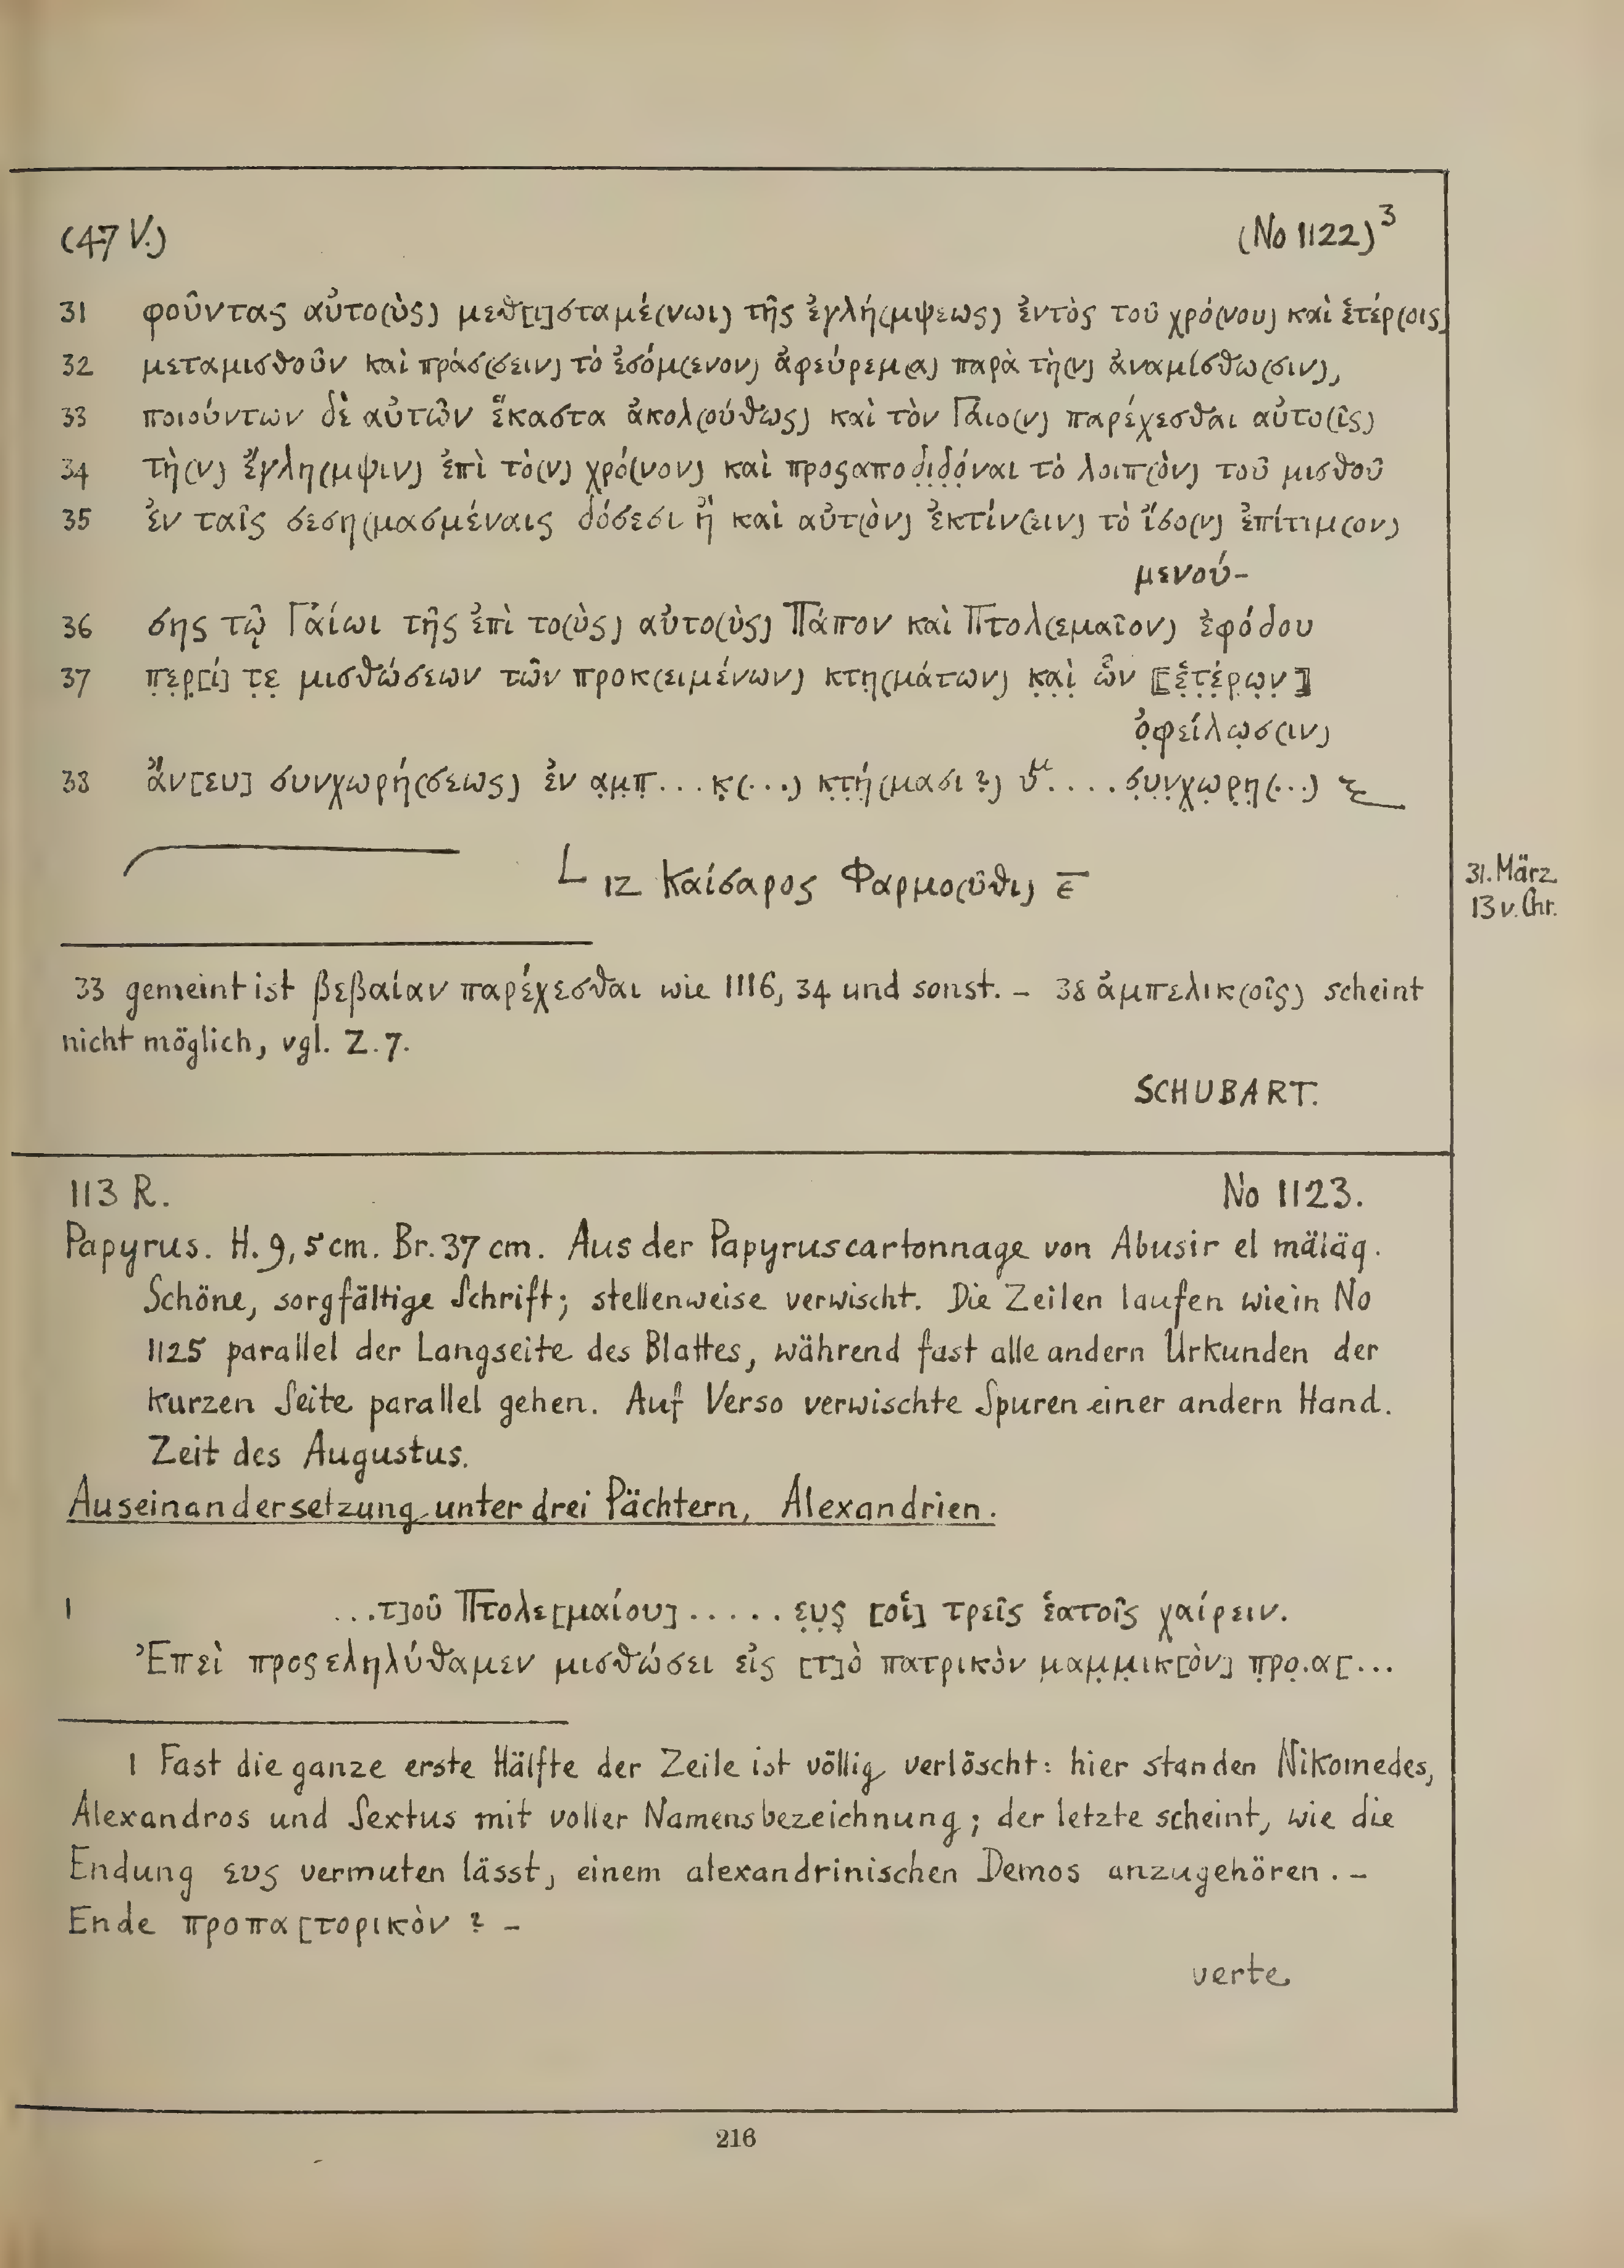 (47 V.) (No 1122)³
31 φοῦντας αὐτο(ὺς) μεθ[ι]σταμέ(νωι) τῆς ἐγλή(μψεως) ἐντὸς τοῦ χρό(νου) καὶ ἑτέρ(οις)
32 μεταμισθοῦν καὶ πράσ(σειν) τὸ ἐσόμ(ενον) ἀφεύρεμ(α) παρὰ τὴ(ν) ἀναμίσθω(σιν),
33 ποιούντων δὲ αὐτῶν ἕκαστα ἀκολ(ούθως) καὶ τὸν Γάιο(ν) παρέχεσθαι αὐτο(ῖς)
34 τὴ(ν) ἔγλη(μψιν) ἐπὶ τὸ(ν) χρό(νον) καὶ προσαποδ̣ι̣δ̣ό̣ναι τὸ λοιπ(ὸν) τοῦ μισθοῦ
35 ἐν ταῖς σεση(μασμέναις δόσεσι ἢ καὶ αὐτ(ὸν) ἐκτίν(ειν) τὸ ἴσο(ν) ἐπίτιμ(ον)
μενού-
36 σης τῷ Γαίωι τῆς ἐπὶ το(ὺς) αὐτο(ὺς) Πάπον καὶ Πτολ(εμαῖον) ἐφόδου
37 π̣ε̣ρ̣[ί] τ̣ε̣ μισθώσεων τῶν προκ(ειμένων) κτη(μάτων) κ̣α̣ὶ̣ ὧν ⟦ἑ̣τ̣έ̣ρ̣ω̣ν̣⟧
ὀ̣φείλω̣σ(ιν)
38 ἄν[ευ] συνχωρή(σεως) ἐν α̣μ̣π̣...κ̣(...) κ̣τ̣ή̣(μασι?) υμ....σ̣υ̣ν̣χ̣ω̣ρ̣η̣(...)
L ιζ Καίσαρος Φαρμο(ῦθι) ε̅
31. März
13 v. Chr.
33 gemeint ist βεβαίαν παρέχεσθαι wie 1116, 34 und sonst. – 38 ἀμπελικ(οῖς) scheint
nicht möglich, vgl. Z. 7.
SCHUBART.
113 R. No 1123.
Papyrus. H. 9,5 cm. Br. 37 cm. Aus der Papyruscartonnage von Abusir el mäläq.
Schöne, sorgfältige Schrift; stellenweise verwischt. Die Zeilen laufen wie in No
1125 parallel der Langseite des Blattes, während fast alle andern Urkunden der
kurzen Seite parallel gehen. Auf Verso verwischte Spuren einer andern Hand.
Zeit des Augustus.
Auseinandersetzung unter drei Pächtern, Alexandrien.
1 ...τ]οῦ Πτολε[μαίου].....ε̣υ̣ς̣ [οἱ] τρεῖς ἑατοῖς χαίρειν.
Ἐπεὶ προσεληλύθαμεν μισθώσει εἰς [τ]ὸ πατρικὸν μ̣αμ̣μ̣ικ[ὸν] π̣ρ̣ο̣.α[...
1 Fast die ganze erste Hälfte der Zeile ist völlig verlöscht: hier standen Nikomedes,
Alexandros und Sextus mit voller Namensbezeichnung; der letzte scheint, wie die
Endung ευς vermuten lässt, einem alexandrinischen Demos anzugehören. –
Ende προπα[τορικὸν ? –
verte
216